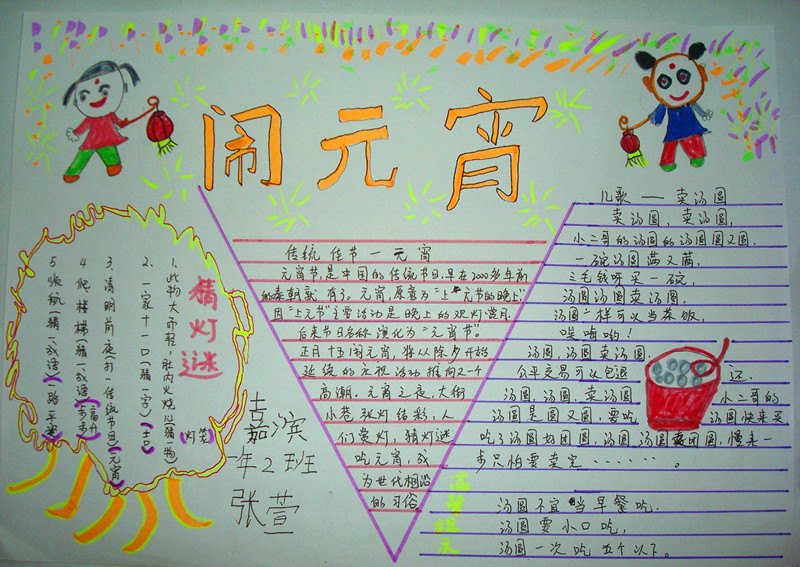 闹元宵
猜灯谜
1、此物大而轻,肚内火烧心(猜一物)(灯笼)
2、一家十一口(猜一字)(吉)
3、清明前夜(打一传统节日)(元宵)
4、爬楼梯(猜一成语)(步步高升)
5、顺航(猜一成语)(一路平安)
嘉滨
一年2班
张萱
传统佳节一元宵
元宵节是中国的传统节日,早在2000多年前
的秦朝就有了。元宵,原意为“上元节的晚上”,
因“上元节”主要活动是晚上的观灯赏月,
后来节日名称演化为“元宵节”。
正月十五闹元宵,将从除夕开始
延续的庆祝活动推向又一个
高潮。元宵之夜,大街
小巷张灯结彩,人
们赏灯,猜灯谜
吃元宵,成
为世代相沿
的习俗
儿歌——卖汤圆
卖汤圆,卖汤圆,
小二哥的汤圆的汤圆圆又圆.
一碗汤圆满又满,
三毛钱呀买一碗,
汤圆汤圆卖汤圆,
汤圆一样可以当茶饭,
唉嗨哟!
汤圆,汤圆卖汤圆.
公平交易可以包退 还.
汤圆,汤圆,卖汤圆 小二哥的
汤圆是圆又圆,要吃 汤圆快来买
吃了汤圆好团圆,汤圆,汤圆 团圆,慢来一
步只怕要卖完………。
温馨提示
汤圆不宜当早餐吃.
汤圆要小口吃,
汤圆一次吃五个以下。